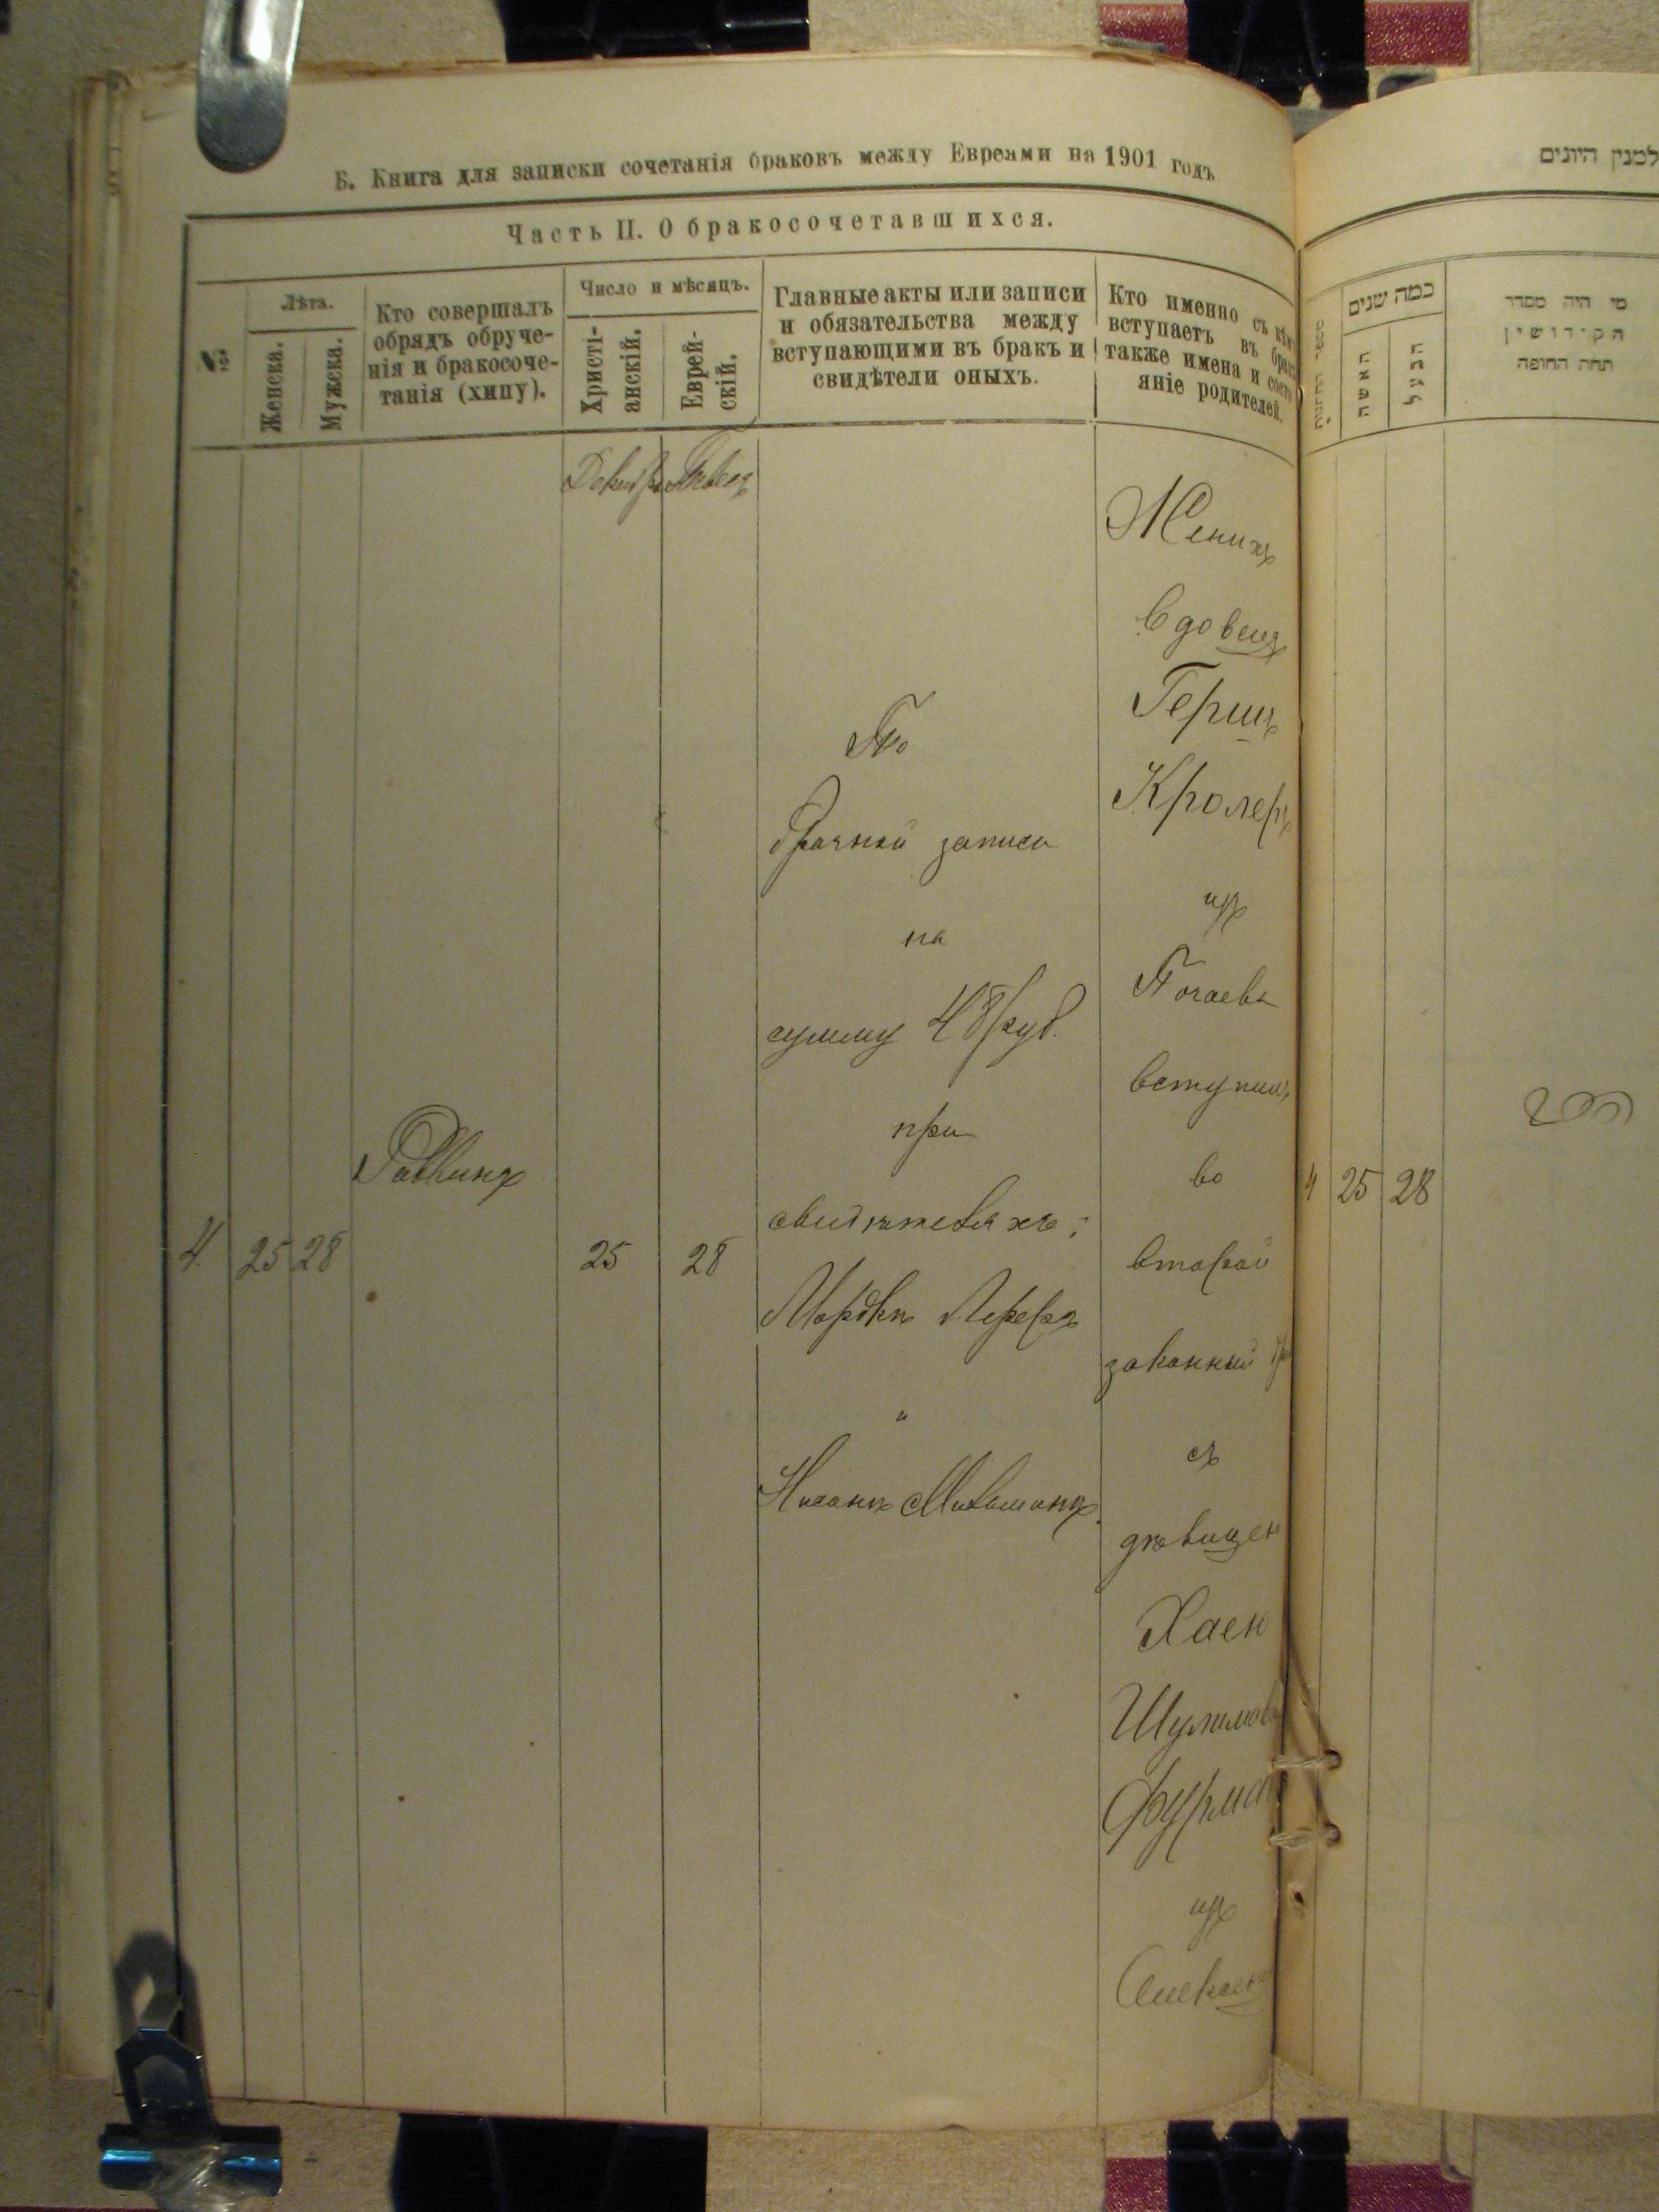 Б. Книга для записки сочетанія браковъ между Евреами на 1901 годъ
Часть II. О бракосочетавшихся.
№
Лѣта.
Женска.
Мужска.
Кто совершалъ
обрядъ обруче-
нія и бракосоче-
танія (хипу).
Число и мѣсяцъ.
Христі-
анскій.
Еврей-
скій.
Главные акты или записи
и обязательства между
вступающими въ бракъ и
свидѣтели оныхъ.
Кто именно съ кѣм
вступаетъ въ брак
также имена и состо
яніе родителей.
Декабрь Тевесъ
4 25 28
Раввинъ
25 28
По
брачной записи
на
сумму 48 руб.
при
свидѣтеляхъ:
Мордко Лереръ
и
Нисонъ
Женихъ
вдовецъ
Гершъ
Кролеръ
изъ
Почаева
вступилъ
во
второй
законный
съ
дѣвицею
Хаею
Шулимов
Фурман
изъ
למנין היונים
כמה שנים
האשה
הבעל
מי היה מסדר
הקידושין
תחת החופה
4 25 28
הרב